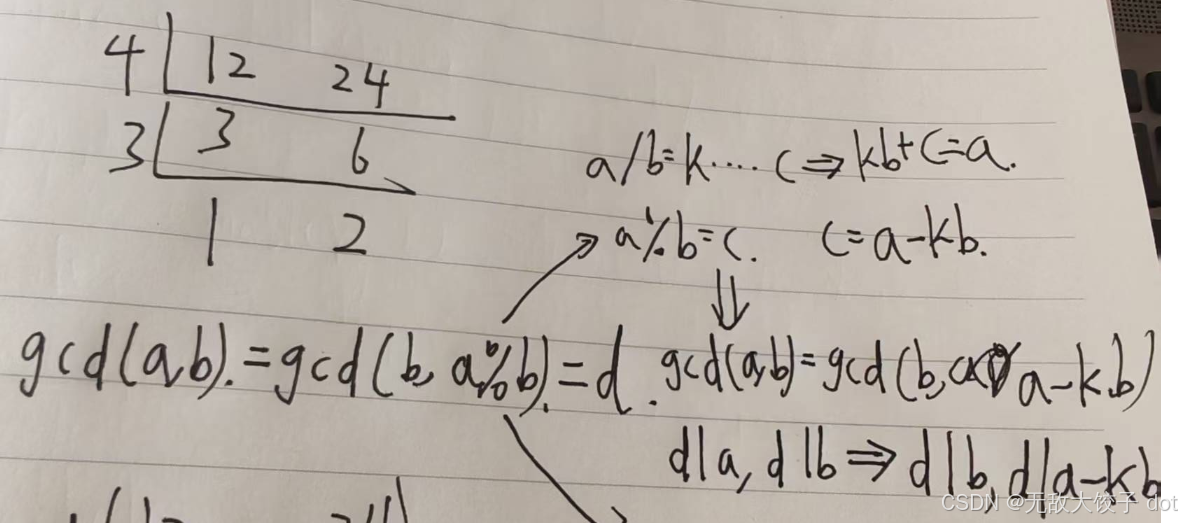 4 12 24
3 3 6
1 2
a/b=k····c⇒kb+c=a.
a%b=c. c=a-kb.
⇓
gcd(a,b).=gcd(b,a%b).=d. gcd(a,b)=gcd(b, a-kb)
d|a,d|b⇒d|b,d|a-kb
CSDN @无敌大饺子 dot